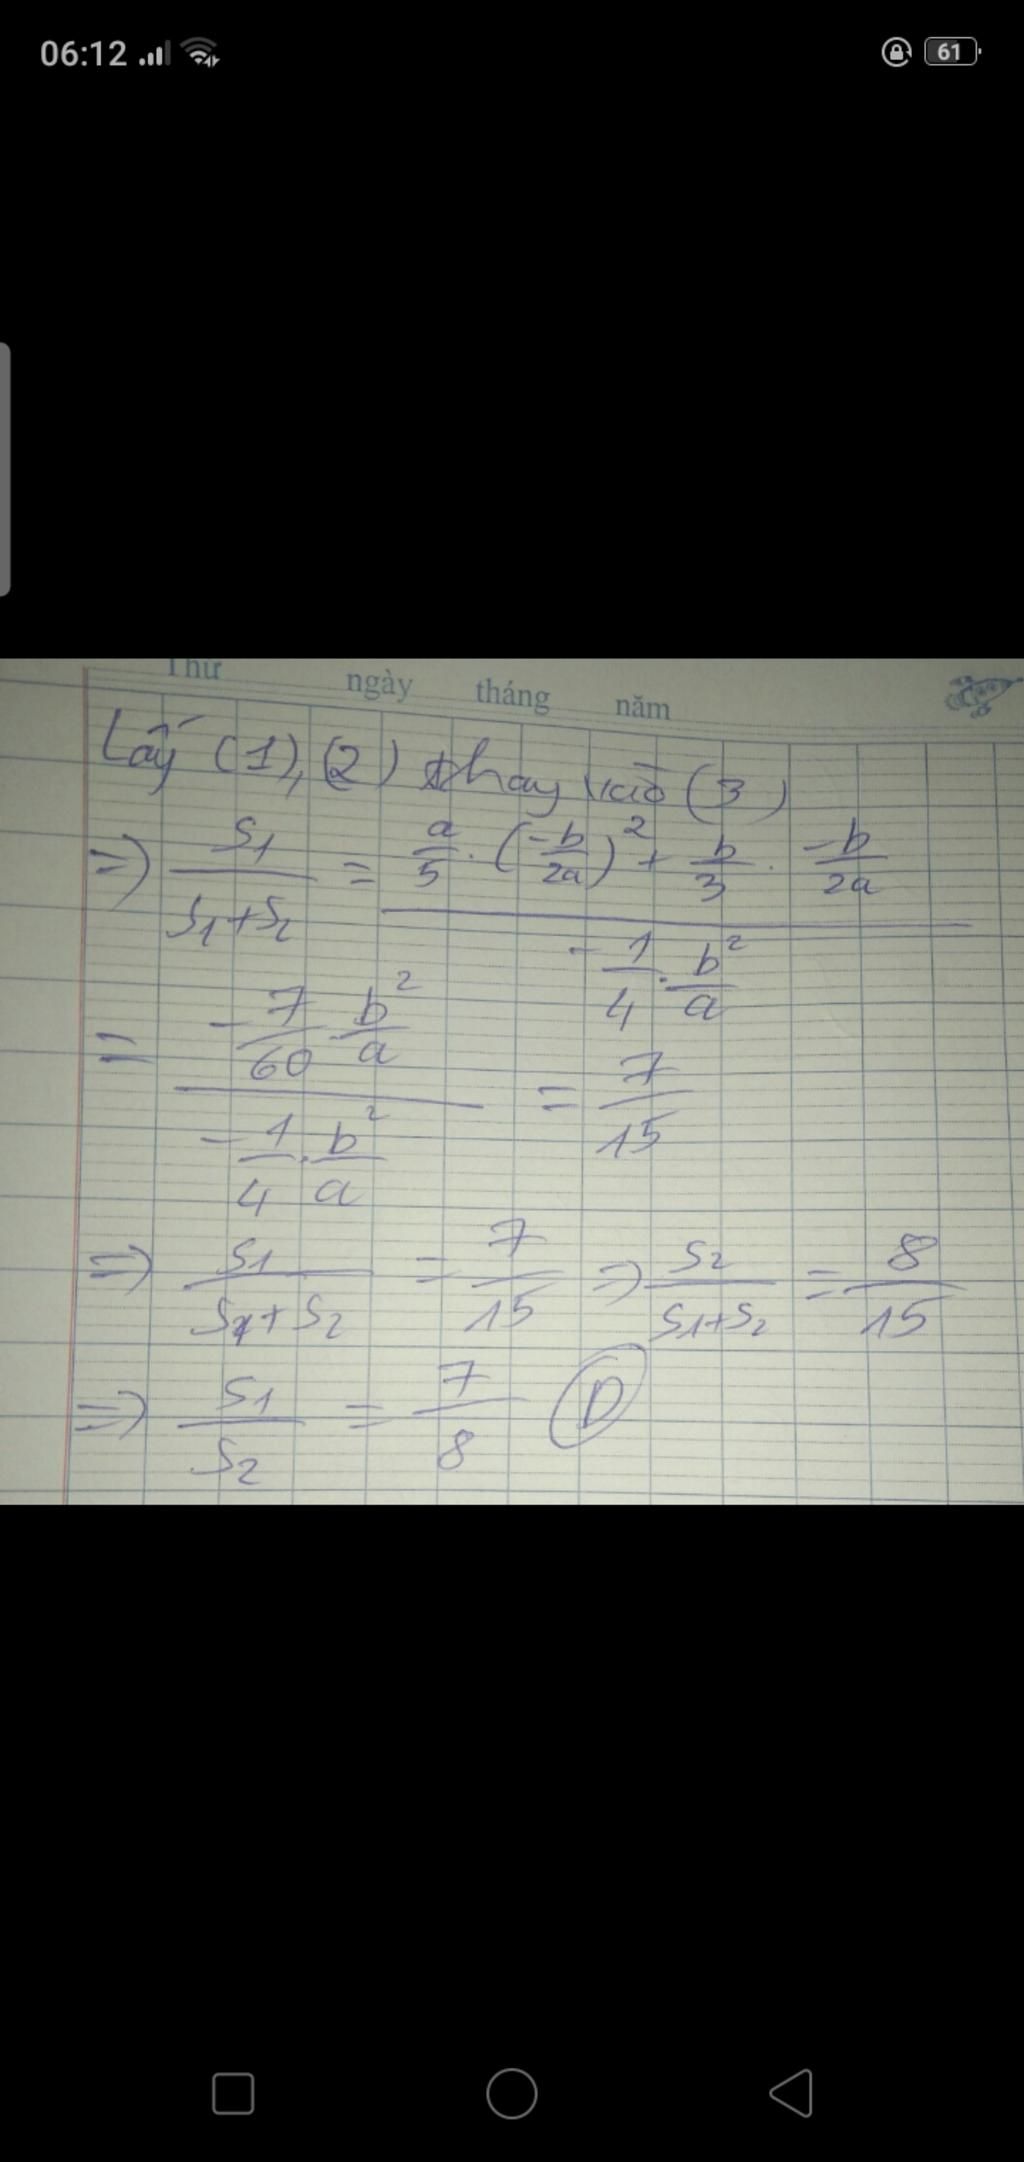 06:12 61
Thứ ngày tháng năm
Lấy (1), (2) thay vào (3)
=> S1/(S1+S2) = (a/5 . (-b/2a)^2 + b/3 . -b/2a) / (-1/4 . b^2/a)
= (-7/60 b^2/a) / (-1/4 . b^2/a) = 7/15
=> S1/(S1+S2) = 7/15 => S2/(S1+S2) = 8/15
=> S1/S2 = 7/8 D